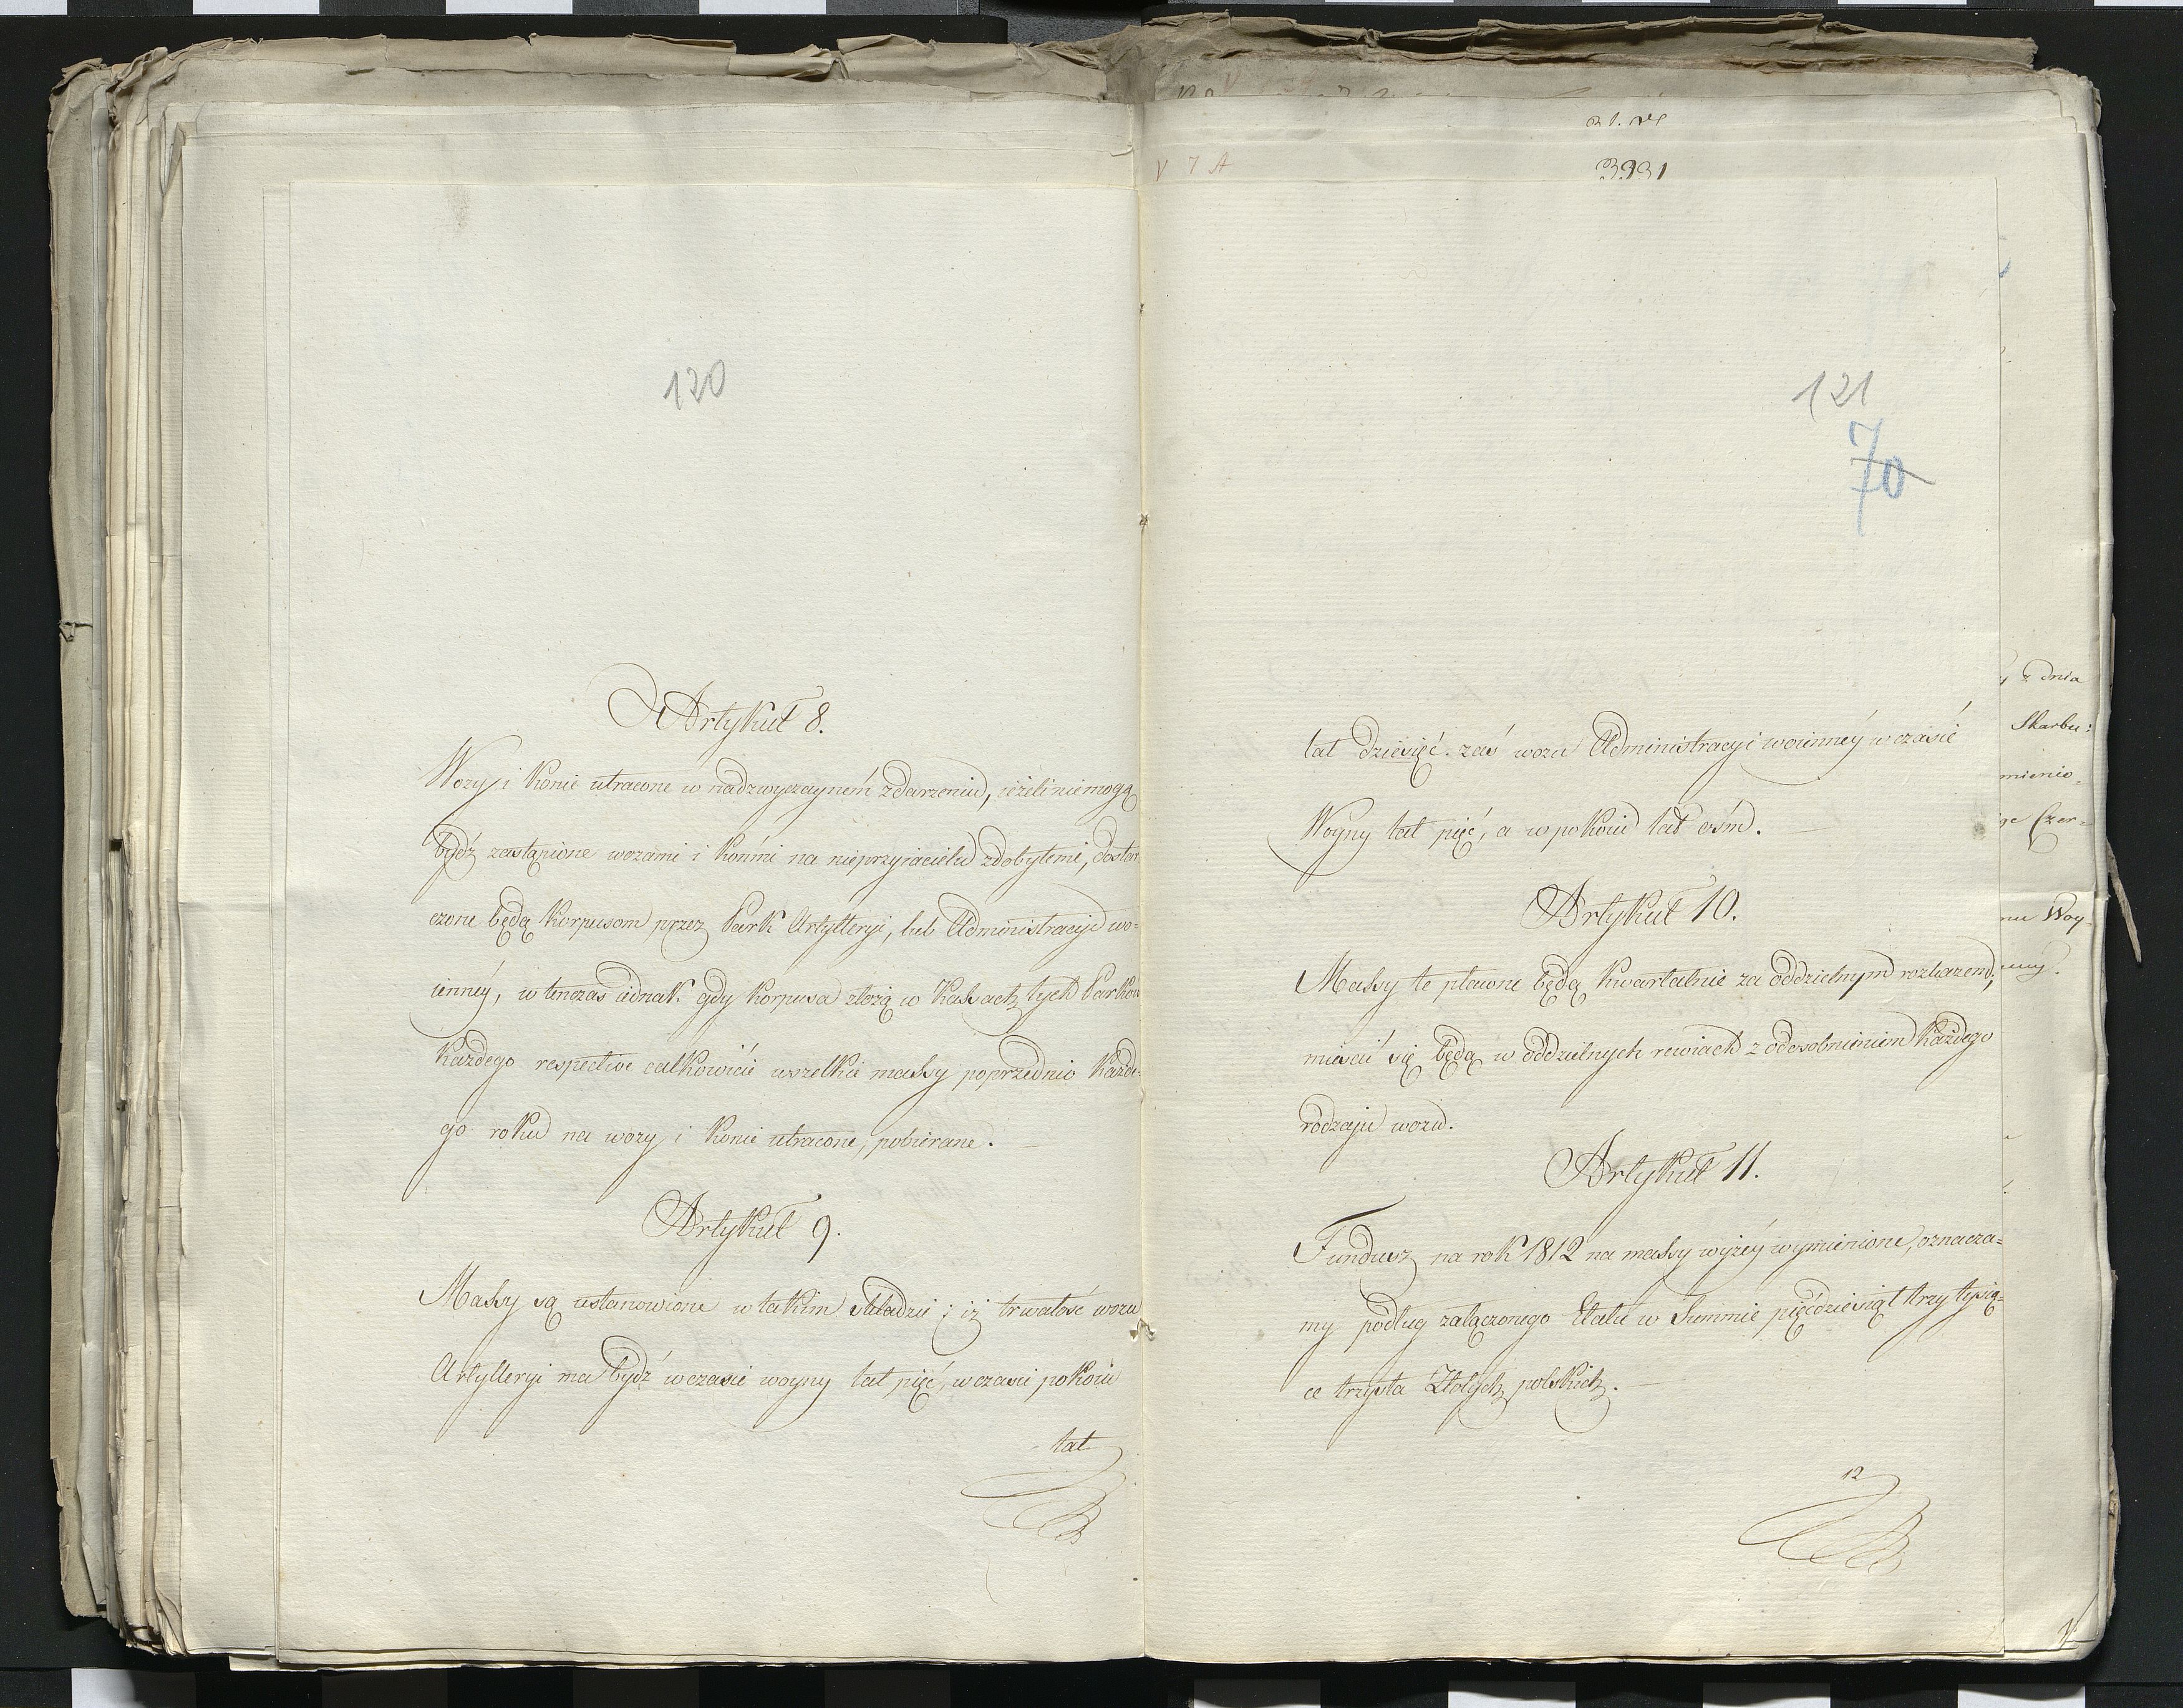 120
Artykuł 8.
Wozy i konie utracone w nadzwyczayném zdarzeniu, ieżeli niemogą
bydź zastąpione wozami i końmi na nieprzyiacielu zdobytemi, dostar
czone będą korpusom przez Park Artylleryi, lub Administracyę wo-
ienney, wtenczas iednak gdy korpusa złożą w Kassach tych Parków
każdego respective całkowicie wszelkie massy poprzednio każde-
go roku na wozy i konie utracone, pobierane.
Artykuł 9.
Massy są ustanowione w takim składzie; iż trwałość wozu
Artylleryi ma bydź w czasie woyny lat pięć, w czasie pokoiu
lat
V 7 A
3991
121
7
70
lat dziesięć. zaś wozu Administracyi woienney w czasie
Woyny lat pięć, a w pokoiu lat ośm.
Artykuł 10.
Massy te płacone będą kwartalnie za oddzielnym rozkazem,
mieścić się będą w oddzielnych rewiach z odosobnieniem każdego
rodzaju wozu.
Artykuł 11.
Fundusz na rok 1812 na massy wyżey wymienione, oznacza=
my podług załączonego Etatu w Summie pięćdziesiąt trzy tysią=
ce trzysta Złotych polskich.
12
z dnia
Skarbu:
mienio=
Czer=
nu Woy-